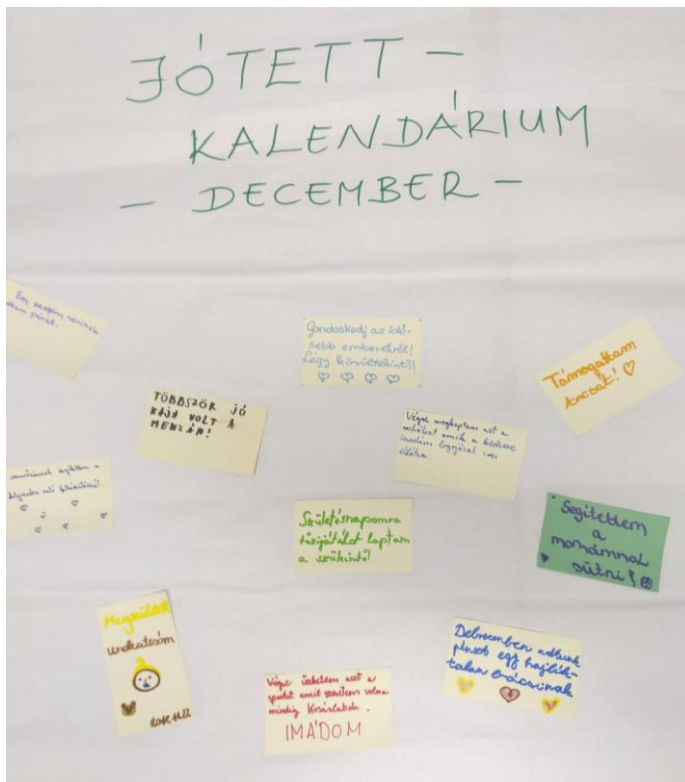 JÓTETT –
KALENDÁRIUM
– DECEMBER –
Egy szegény néninek
pénzt.
Gondoskodj az idő-
sebb emberekről!
Légy körültekintő!
Támogattam
TÖBBSZÖR JÓ
KAJA VOLT A
MENZÁN!
Végre megkaptam azt a
ruhákat amik a kedvenc
vannak
ellátva.
segítettem a
való felkészülésnél.
Születésnapomra
társjátékot kaptam
a szüleimtől
Segítettem
a
mamámnak
sütni!
Megszületett
unokatesóm
Végre űzhetem azt a
sportot amit szerettem volna
mindig Kosárlabda.
IMÁDOM
Debrecenben adtunk
pénzt egy hajlék-
talan bácsinak